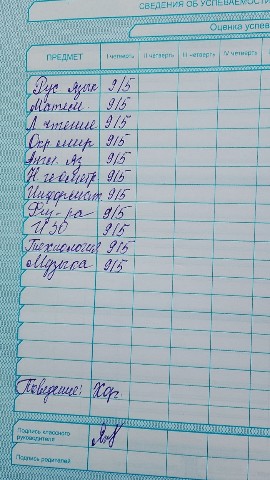 СВЕДЕНИЯ ОБ УСПЕВАЕМОСТИ
Оценка успев
ПРЕДМЕТ I четверть II четверть III четверть IV четверть
Рус язык 9/5
Матем. 9/5
Л чтение 9/5
Окр мир 9/5
Англ. яз 9/5
Н геометр 9/5
Информат 9/5
Физ-ра 9/5
ИЗО 9/5
Технология 9/5
Музыка 9/5
Поведение: Хор.
Подпись классного
руководителя
Подпись родителей